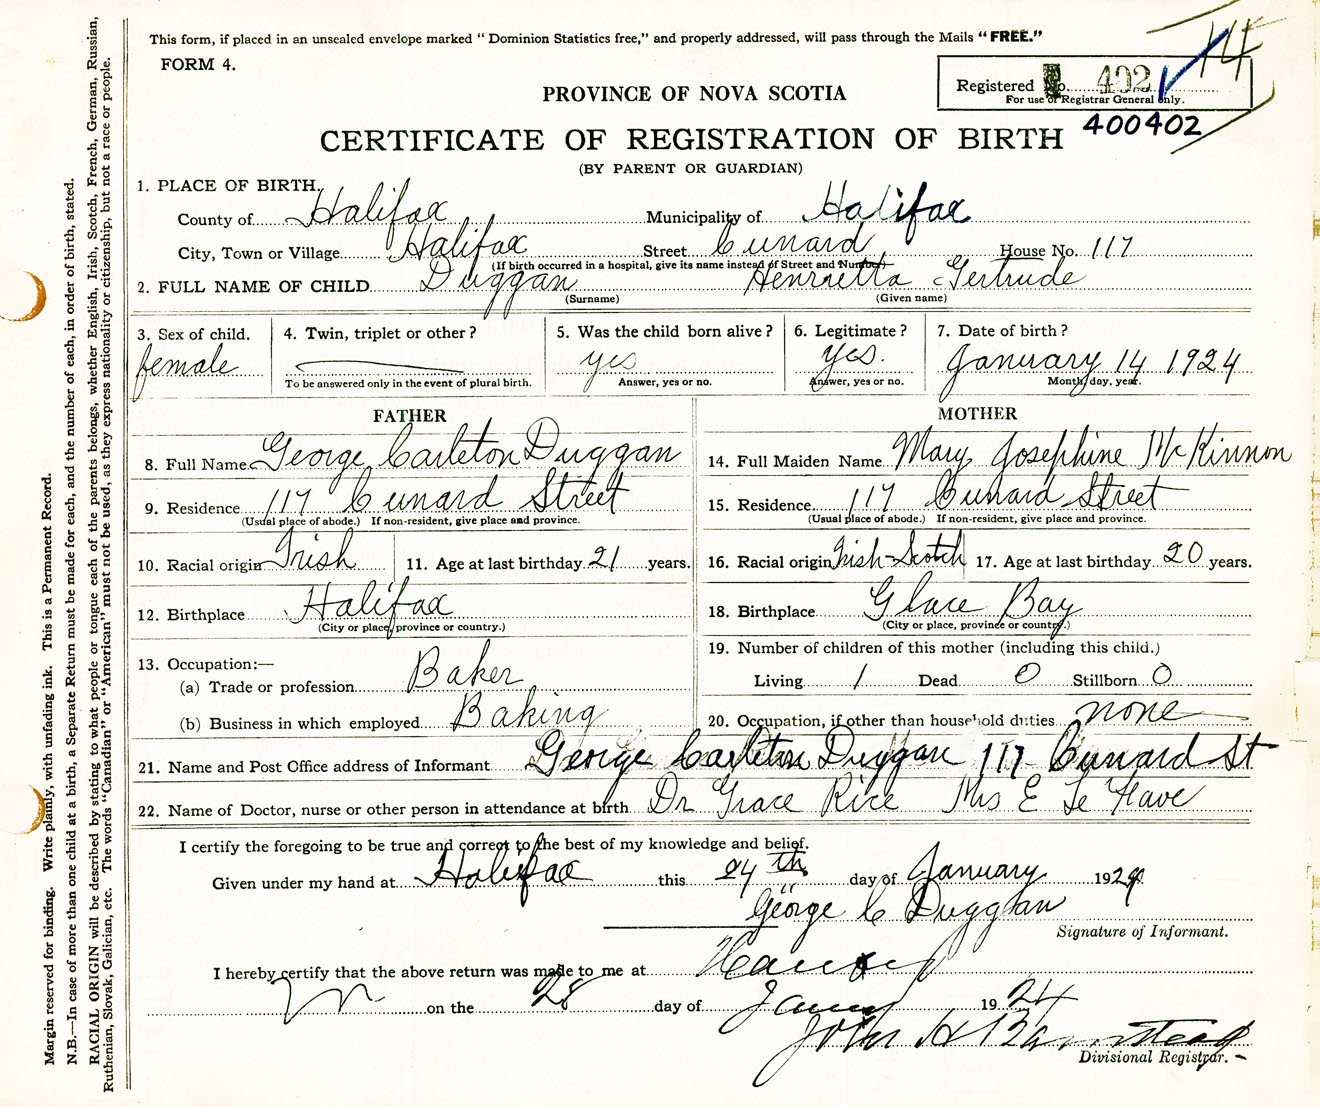 This form, if placed in an unsealed envelope marked "Dominion Statistics free," and properly addressed, will pass through the Mails "FREE."
FORM 4.
14
Registered No. 402
For use of Registrar General only.
400402
PROVINCE OF NOVA SCOTIA
CERTIFICATE OF REGISTRATION OF BIRTH
(BY PARENT OR GUARDIAN)
1. PLACE OF BIRTH.
County of Halifax Municipality of Halifax
City, Town or Village Halifax Street Cunard House No. 117
(If birth occurred in a hospital, give its name instead of Street and Number)
2. FULL NAME OF CHILD Duggan Henrietta Gertrude
(Surname) (Given name)
3. Sex of child. female
4. Twin, triplet or other?
To be answered only in the event of plural birth.
5. Was the child born alive? yes
Answer, yes or no.
6. Legitimate? yes.
Answer, yes or no.
7. Date of birth? January 14 1924
Month, day, year.
FATHER
8. Full Name George Carleton Duggan
9. Residence 117 Cunard Street
(Usual place of abode.) If non-resident, give place and province.
10. Racial origin Irish 11. Age at last birthday 21 years.
12. Birthplace Halifax
(City or place, province or country.)
13. Occupation:—
(a) Trade or profession Baker
(b) Business in which employed Baking
MOTHER
14. Full Maiden Name Mary Josephine McKinnon
15. Residence 117 Cunard Street
(Usual place of abode.) If non-resident, give place and province.
16. Racial origin Irish-Scotch 17. Age at last birthday 20 years.
18. Birthplace Glace Bay
(City or place, province or country.)
19. Number of children of this mother (including this child.)
Living 1 Dead 0 Stillborn 0
20. Occupation, if other than household duties none
21. Name and Post Office address of Informant George Carleton Duggan 117 Cunard St
22. Name of Doctor, nurse or other person in attendance at birth Dr Grace Rice Mrs E Le Fave
I certify the foregoing to be true and correct to the best of my knowledge and belief.
Given under my hand at Halifax this 24th day of January 1924
George C Duggan
Signature of Informant.
I hereby certify that the above return was made to me at
on the 28 day of Jany 1924
John H Barnstead
Divisional Registrar.
Margin reserved for binding. Write plainly, with unfading ink. This is a Permanent Record.
N.B.—In case of more than one child at a birth, a Separate Return must be made for each, and the number of each, in order of birth, stated.
RACIAL ORIGIN will be described by stating to what people or tongue each of the parents belongs, whether English, Irish, Scotch, French, German, Russian,
Ruthenian, Slovak, Galician, etc. The words "Canadian" or "American" must not be used, as they express nationality or citizenship, but not a race or people.